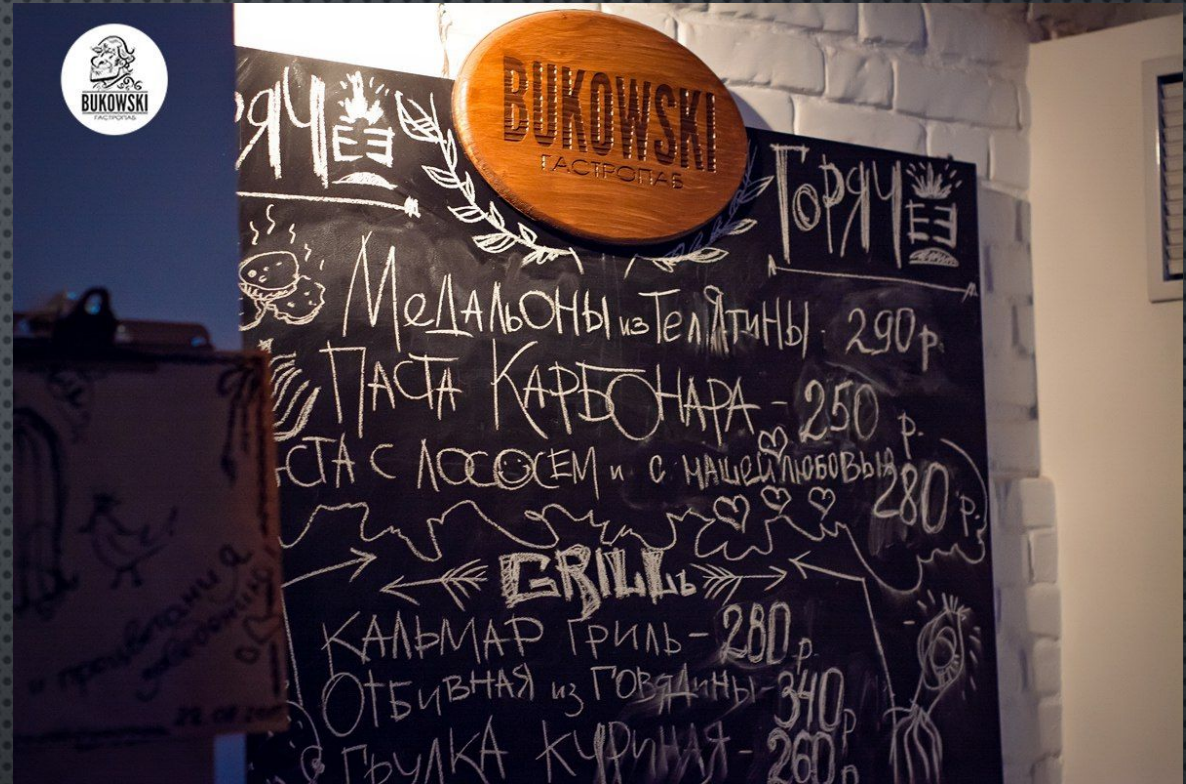 BUKOWSKI
ГАСТРОПАБ
BUKOWSKI
ГАСТРОПАБ
РЯЧЕЕ
ГОРЯЧЕЕ
МеДАЛЬОНЫ из ТелЯТиНЫ - 290р.
ПАСТА КАРБОНАРА - 250 р.
СТА С ЛОСОСЕМ и С НАШЕЙ ЛЮБОВЬЮ 280 р.
GRILLЬ
КАЛЬМАР ГРИЛЬ - 280 р.
ОТБИВНАЯ из ГОВЯДИНЫ - 340 р
ГРУДКА КУРИНАЯ - 260 р